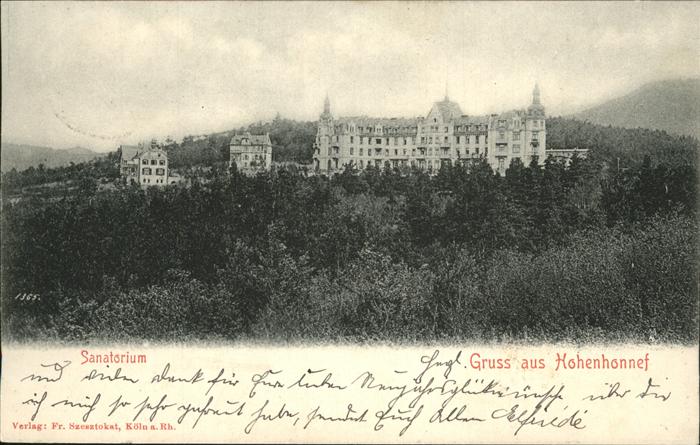 1365.
Sanatorium
Hzgl. Gruss aus Hohenhonnef
und vielen Dank für Eure lieben Neujahrsglückwünsche über die
ich mich so sehr gefreut habe, sendet Euch Allen Elfriede
Verlag: Fr. Szesztokat, Köln a. Rh.